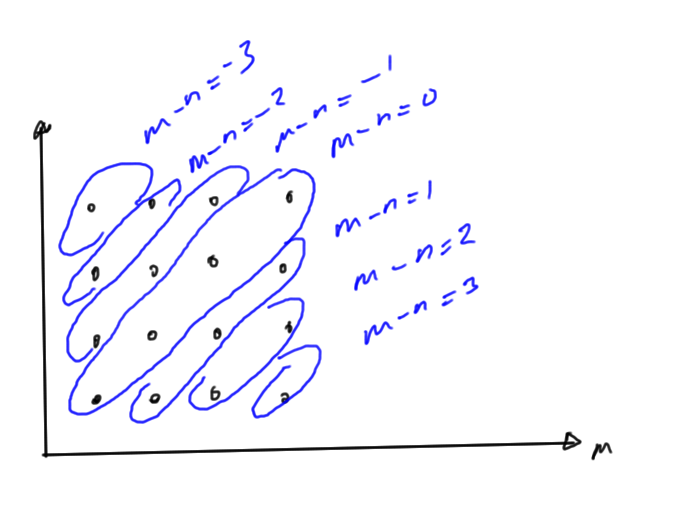 m-n=-3
m-n=-2
m-n=-1
m-n=0
m-n=1
m-n=2
m-n=3
m